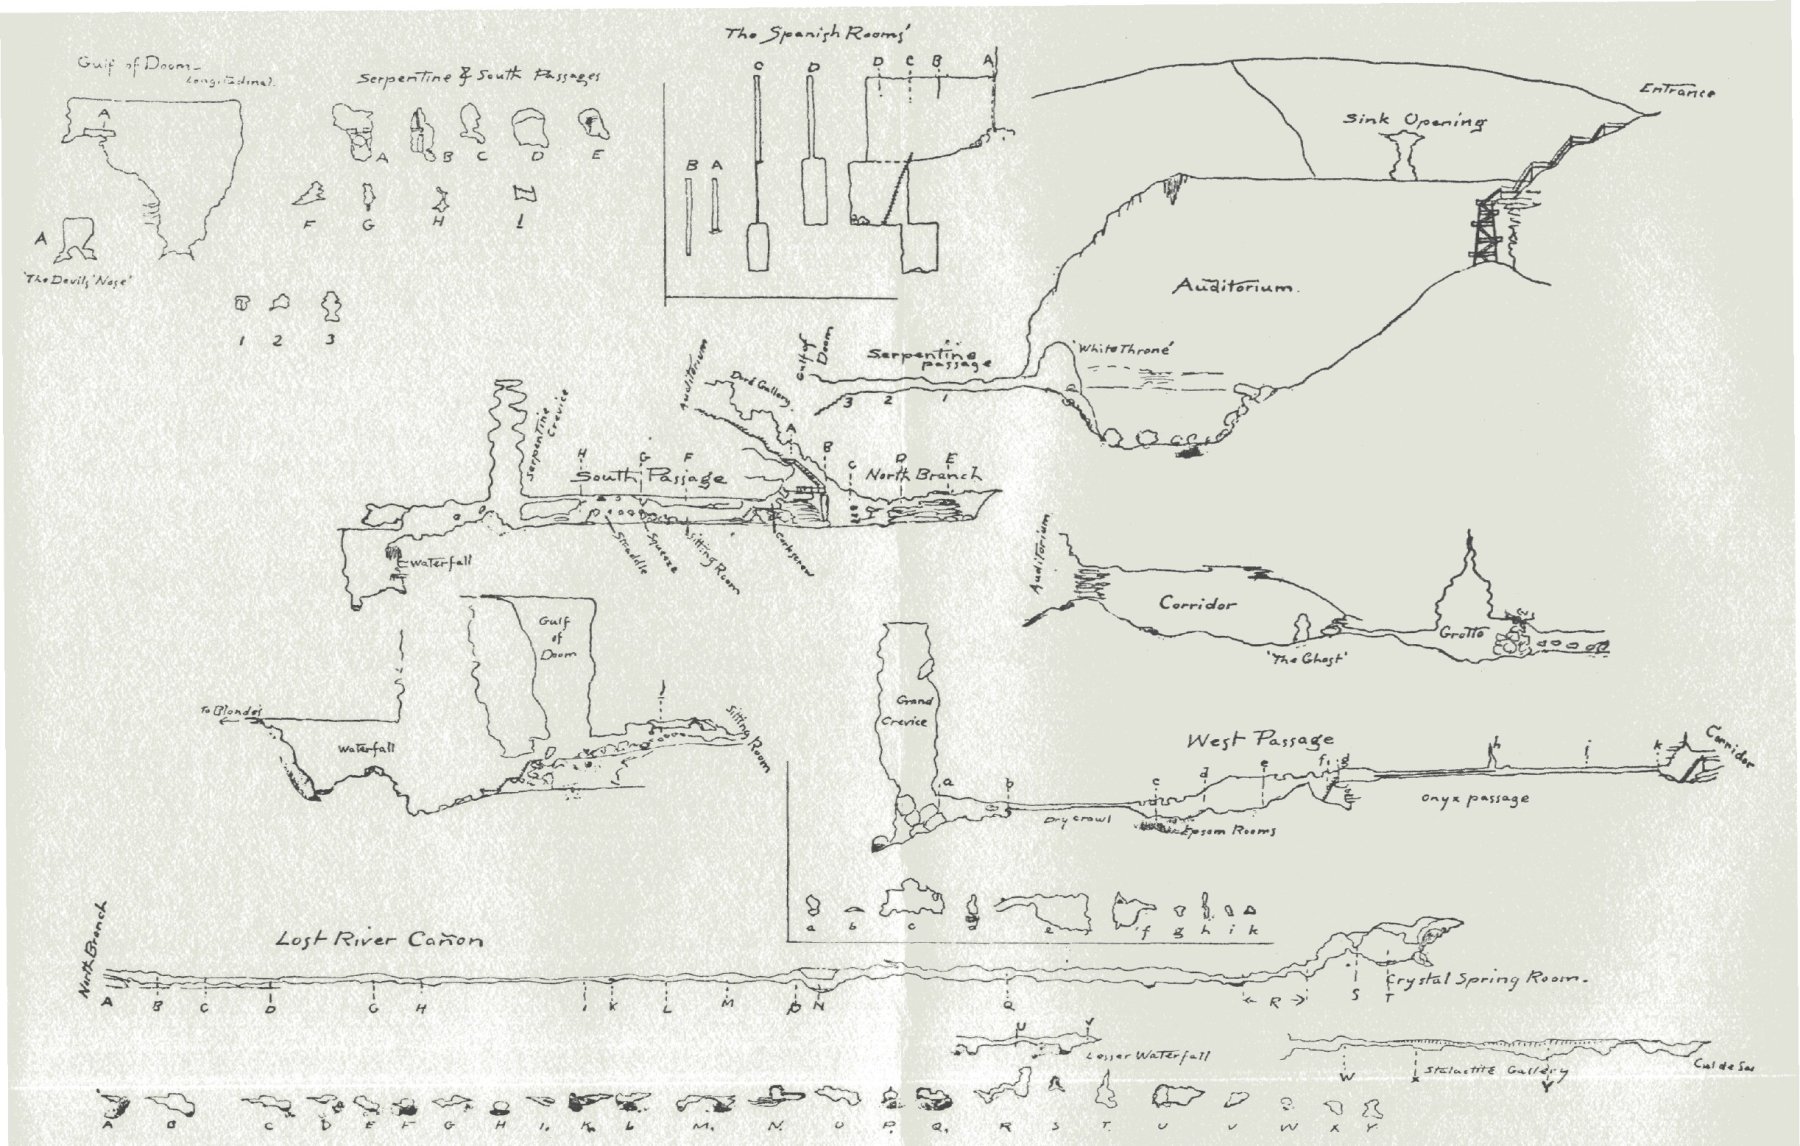 The Spanish Rooms'
Gulf of Doom-
Longitudinal.
Serpentine & South Passages
A
A B C D E
F G H I
A
'The Devils' Nose'
1 2 3
C D
D C B A
B A
Entrance
Sink Opening
Auditorium.
'White Throne'
Serpentine
passage
Gulf of
Doom
3 2 1
Auditorium
Dord Gallery.
A
B
Serpentine
Crevice
H G F
South Passage
C D E
North Branch
Straddle
Squeeze
Sitting Room
Corkscrew
Waterfall
Auditorium
Corridor
'The Ghost'
Grotto
Gulf
of
Doom
To Blondes
Waterfall
Sitting
Room
Grand
Crevice
West Passage
Corridor
a b c d e f g h i k
Dry crawl
Epsom Rooms
Onyx passage
a b c d e f g h i k
North Branch
Lost River Cañon
A B C D G H I K L M P N Q R S T
Crystal Spring Room.
U V
Lesser Waterfall
W X Y
Stalactite Gallery
Cul de Sac
A B C D E F G H I. K. L M. N. O P. Q. R S T. U V W X Y